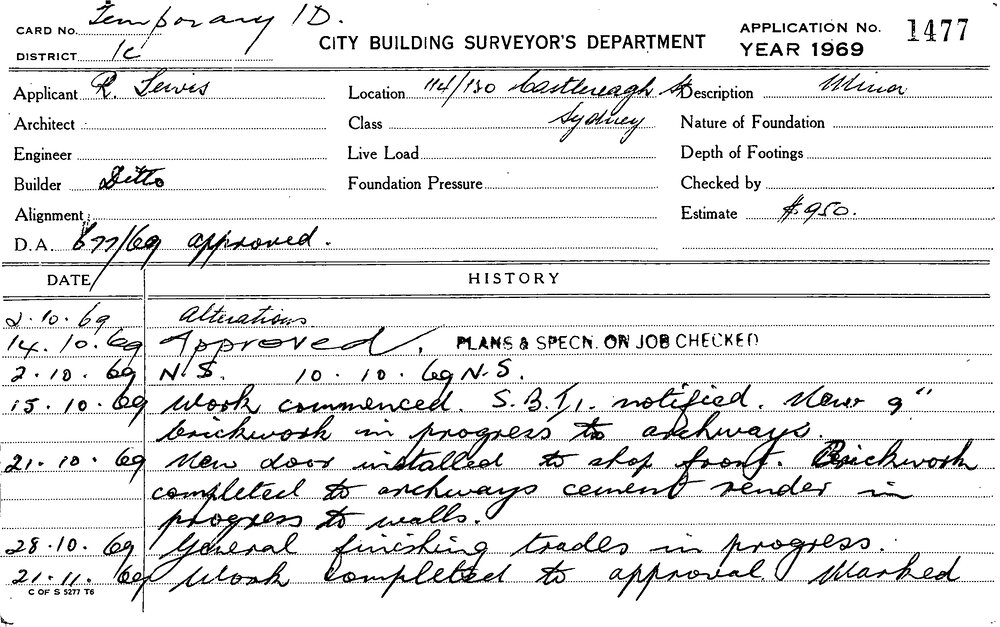 CARD No. Temporary 1D.
DISTRICT 1c
CITY BUILDING SURVEYOR'S DEPARTMENT
APPLICATION No. 1477
YEAR 1969
Applicant R. Lewis
Location 114/130 Castlereagh St
Description Minor
Architect
Class Sydney
Nature of Foundation
Engineer
Live Load
Depth of Footings
Builder Ditto
Foundation Pressure
Checked by
Alignment
Estimate $950.
D.A. 677/69 approved.
DATE HISTORY
2.10.69 Alterations
14.10.69 Approved. PLANS & SPECN. ON JOB CHECKED
2.10.69 N.S. 10.10.69 N.S.
15.10.69 Work commenced. S.B.I. notified. New 9"
brickwork in progress to archways.
21.10.69 New door installed to shop front. Brickwork
completed to archways cement render in
progress to walls.
28.10.69 General finishing trades in progress.
21.11.69 Work completed to approval Marked
C OF S 5277 T6